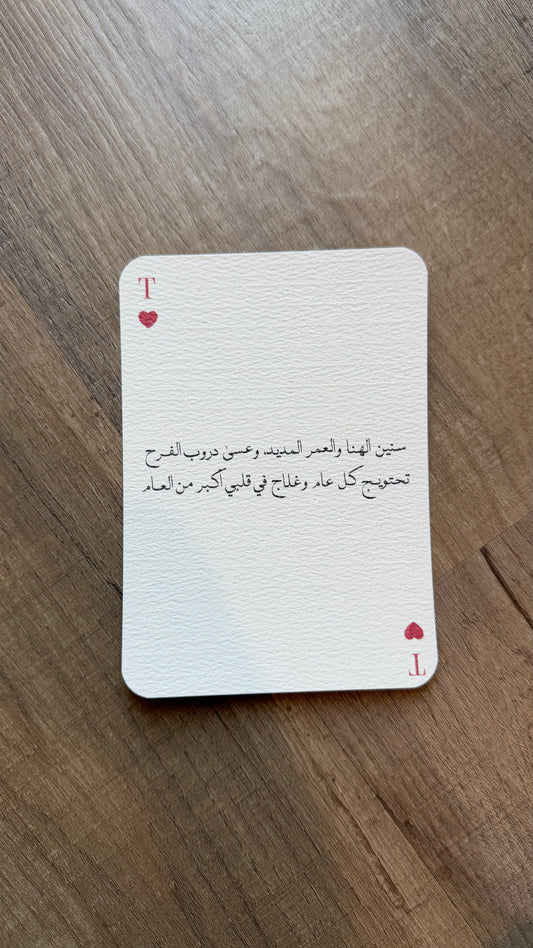 T
سنين الهنا والعمر المديد، وعسىٰ دروب الفرح
تحتويج كل عام وغلاج في قلبي أكبر من العام
T